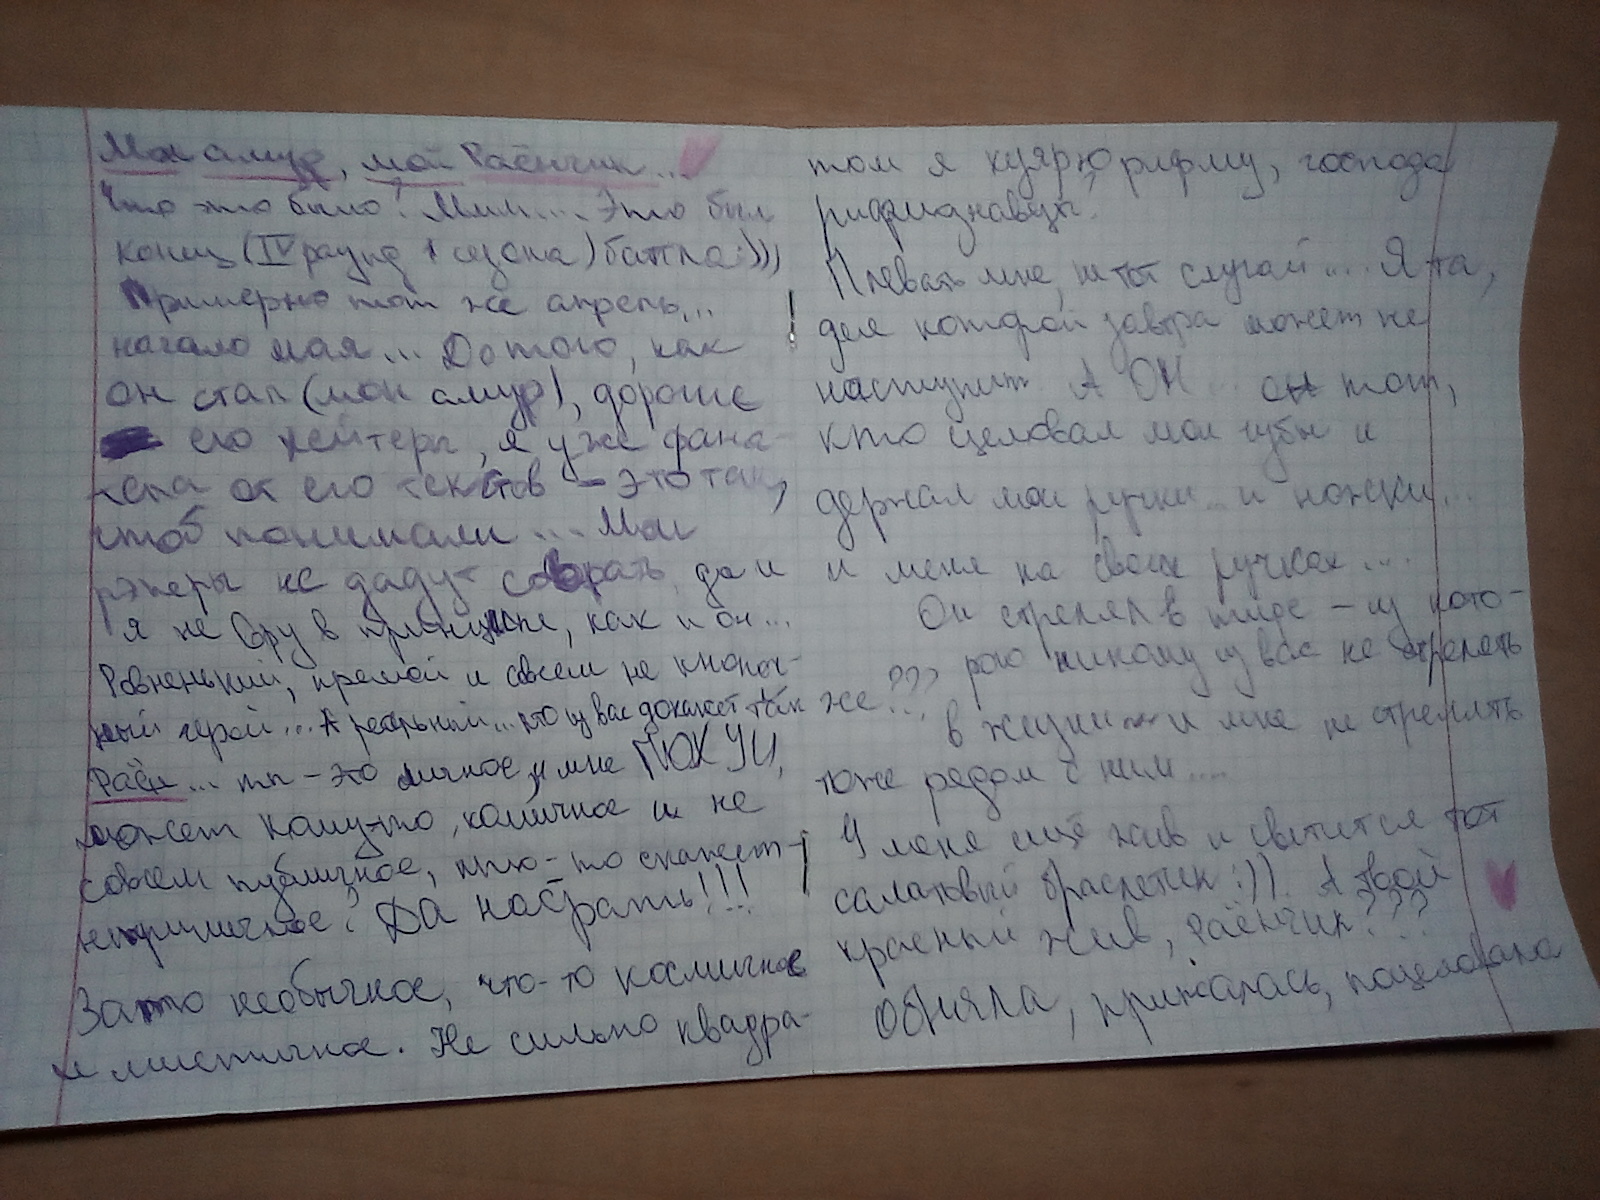 Мон амур, мой Раёнчик...
Что это было? Ммм.... Это был
конец (IV раунд 1 сезона) баттла:)))
Примерно тот же апрель,...
начало мая... До того, как
он стал (мон амур), дороже
его хейтеры, я уже фана-
тела от его текстов – это так,
чтоб понимали.... Мои
рэперы не дадут соврать, да и
я не вру в принципе, как и он...
Ровненький, прямой и совсем не кнопоч-
ный герой... А реальный... кто из вас докажет так же???
Раён... ты – это личное, и мне ПОХУЙ,
может кому-то, комичное и не
совсем публичное, кто-то скажет –
неприличное? Да насрать!!!
Затто необычное, что-то космичное
и мистичное. Не сильно квадра-
том я хуярю рифму, господа
рифмазнавцы?
Плевать мне, не тот случай.... Я та,
для которой завтра может не
наступит. А ОН... он тот,
кто целовал мои губы и
держал мои ручки... и ножки...
и меня на своих ручках....
Он стрелял в тире – из кото-
рого никому из вас не стрелять
в жизни – и мне не стрелять
тоже рядом с ним....
У меня ещё жив и светится тот
салатовый браслетик:)). А твой
красный жив, Раёнчик???
Обняла, прижалась, поцеловала